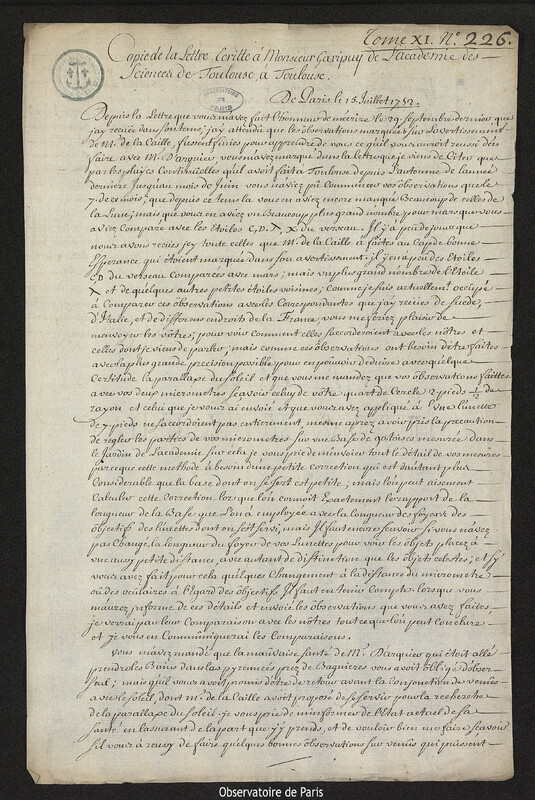 Tome XI. N.° 226.
Copie de la Lettre Ecritte à Monsieur Garipuy de l'academie des
Sciences de Toulouse, à Toulouse.
OBSERVATOIRE DE PARIS
De Paris le 15. Juillet 1752.
Depuis la Lettre que vous m'avez fait l'honneur de m'ecrire le 29. Septembre dernier, que
j'ay reciüe dans son tems, j'ay attendu que les observations marquées sur l'avertissement
de M. de la Caille, fussent finies pour apprendre de vous ce qu'il vous avoit reussi d'en
faire avec M. Darquier vous m'avez marqué dans la lettre que je viens de Citer que
par les pluyes Continuelles qu'il avoit fait à Toulouse depuis l'autonne de l'année
derniere jusqu'au mois de Juin vous n'aviez pû Commencer vos observations que le
7. de ce mois; que depuis ce tems la vous en aviez encore manqué Beaucoup de celles de
la Lune; mais que vous en aviez un beaucoup plus grand nombre pour mars que vous
aviez Comparé avec les Etoiles du verseau. Il y a peu de jours que
nous avons reciües icy toutes celles que M. de la Caille à faittes au Cap de bonne
Esperance qui étoient marquées dans son avertissement. il y en a peu des Etoiles
du verseau Comparées avec mars; mais un plus grand nombre de l'Etoile
et de quelques autres petites étoiles voisines; Comme je suis actuellement occupé
à Comparer ces observations avec les Correspondantes que j'ay reciües de Suede,
d'Italie, et de differens endroits de la France, vous me feriez plaisir de
m'envoyer les vôtres, pour voir comment elles s'accordéroient avec les nôtres et
celles dont je viens de parler; mais comme ces observations ont besoin d'être faites
avec la plus grande precision possible pour en pouvoir déduire avec quelque
Certitude la parallaxe du Soleil et que vous me mandez que vos observations faittes
avec vos deux micrometres sçavoir celuy de vôtre quart de Cercle 2 pieds ½ de
rayon et celui que je vous ai envoié et que vous avez appliqué à une lunette
de 7. pieds ne s'accordoient pas entierement, mesme aprez avoir pris la precaution
de regler les parties de vos micrometres sur une Base de 90 toises mesurée dans
le Jardin de l'academie sur cela je vous prie de m'envoier tout le détail de vos mesures
parceque cette methode à besoin d'une petite correction qui est d'autant plus
Considerable que la base dont on se sert est petite; mais l'on peut aisement
Calculer cette Correction. lorsque l'on connoît Exactement le rapport de la
longueur de la Base que l'on a employée avec la longueur des foyers des
objectifs des lunettes dont on s'est servi; mais Il faut encore sçavoir si vous n'avez
pas Changé la longueur du foyer de vos Lunettes pour voir les objets placez à
une aussi petite distance, avec autant de distinction que les objets celestes; et s'y
vous avez fait pour cela quelques Changement à la distance du micrometre
ou des oculaires à l'égard des objectifs Il faut en tenir Compte. lorsque vous
m'aurez informé de ces détails et envoié les observations que vous avez faites,
je verrai par leur Comparaison avec les nôtres tout ce que l'on peut Conclure
et je vous en Communiquerai les Comparaisons.
vous m'avez mandé que la mauvaise santé de M. Darquier qui étoit allé
prendre les Bains dans les pyrennées prez de Bagnieres vous avoit obligé d'observer
seul; mais qu'il vous avoit promis d'être de retour avant la Conjonction de venus
avec le Soleil, dont M. de la Caille avoit proposé de se servir pour la recherche
de la parallaxe du Soleil. je vous prie de m'informer de l'Etat actuel de sa
Santé en l'assurant de la part que j'y prends, et de vouloir bien me faire sçavoir
s'il vous à reussy de faire quelques bonnes observations sur venus qui puissent
Observatoire de Paris